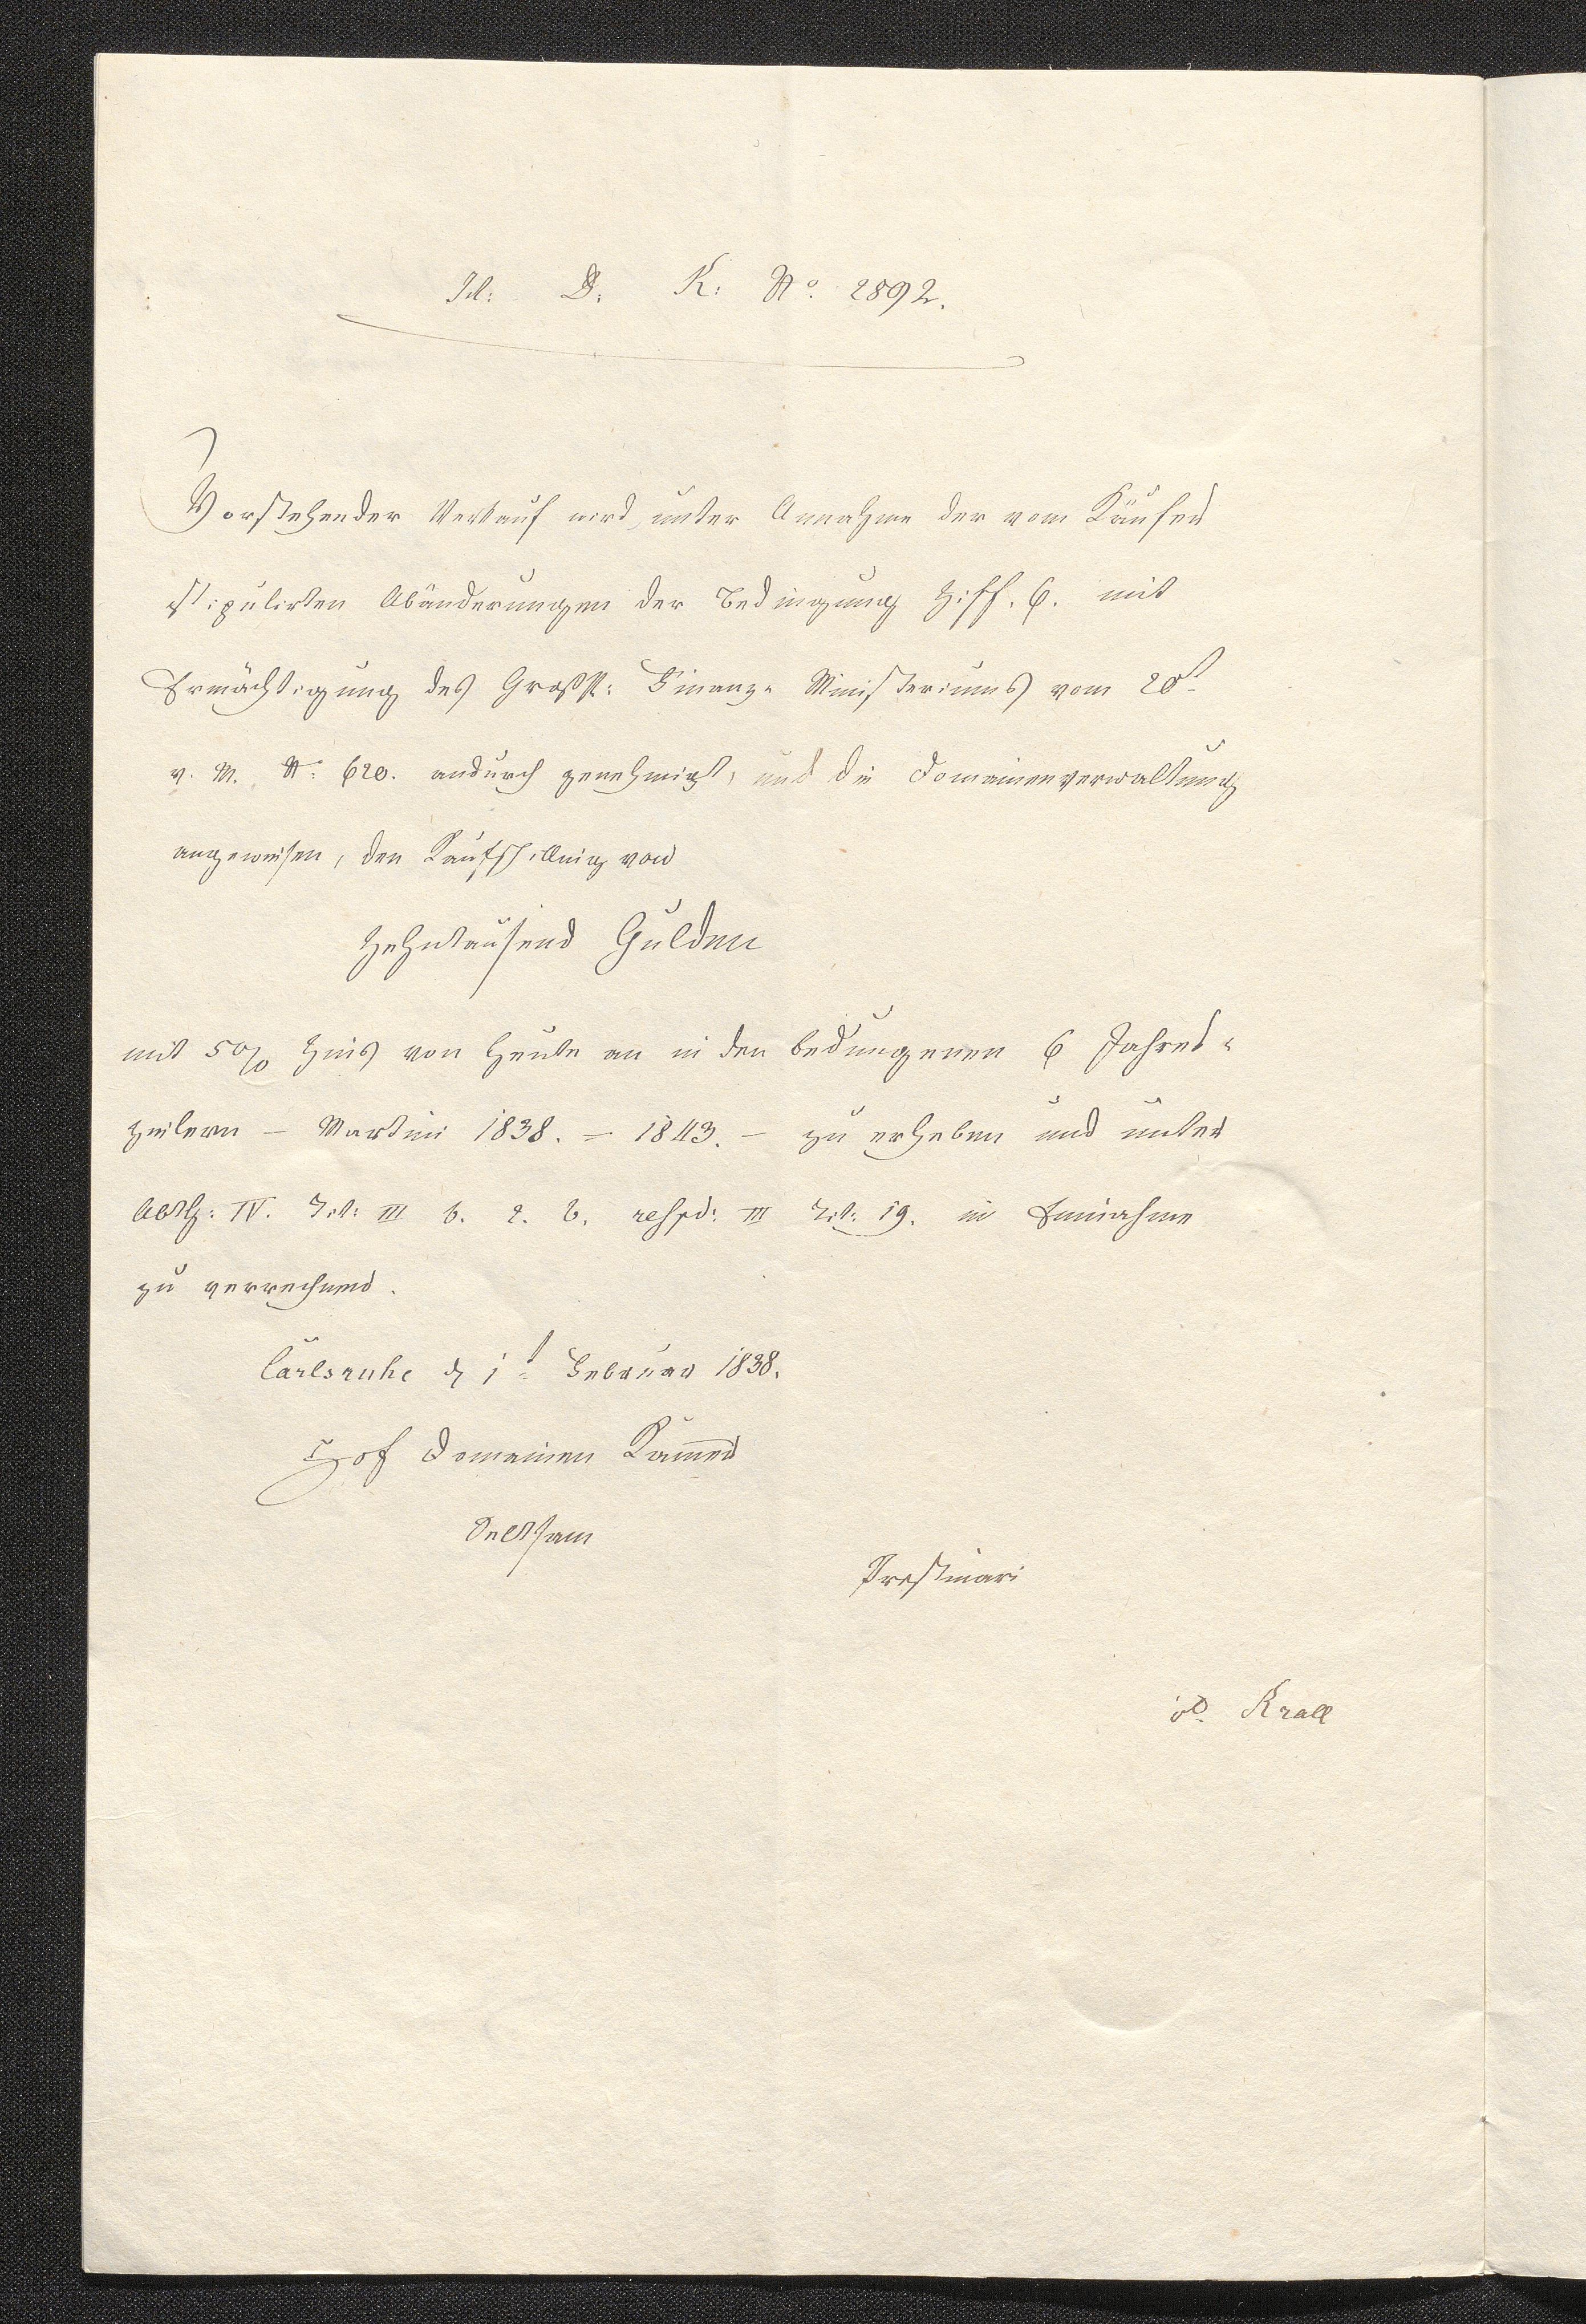 H. D. K. No. 2892.
Vorstehender Verkauf wird, unter Annahme der vom Käufer
stipulirten Abänderungen der Bedingung Ziff. 6. mit
Ermächtigung des Großh: Finanz- Ministeriums vom 20t
v. M. N: 620. andurch genehmigt, und die Domainenverwaltung
angewiesen, den Kaufschilling von
Zehntausend Gulden
mit 5% Zins von heute an in den bedungenen 6 Jahres-
zielern – Martini 1838. = 1843. – zu erheben und unter
Abth: IV. Tit: III b. 2. b. respd: III Tit: 19. in Einnahme
zu verrechnen.
Carlsruhe d 1t Februar 1838.
Hof Domainen Kammer
Prestinari
vd. Krall